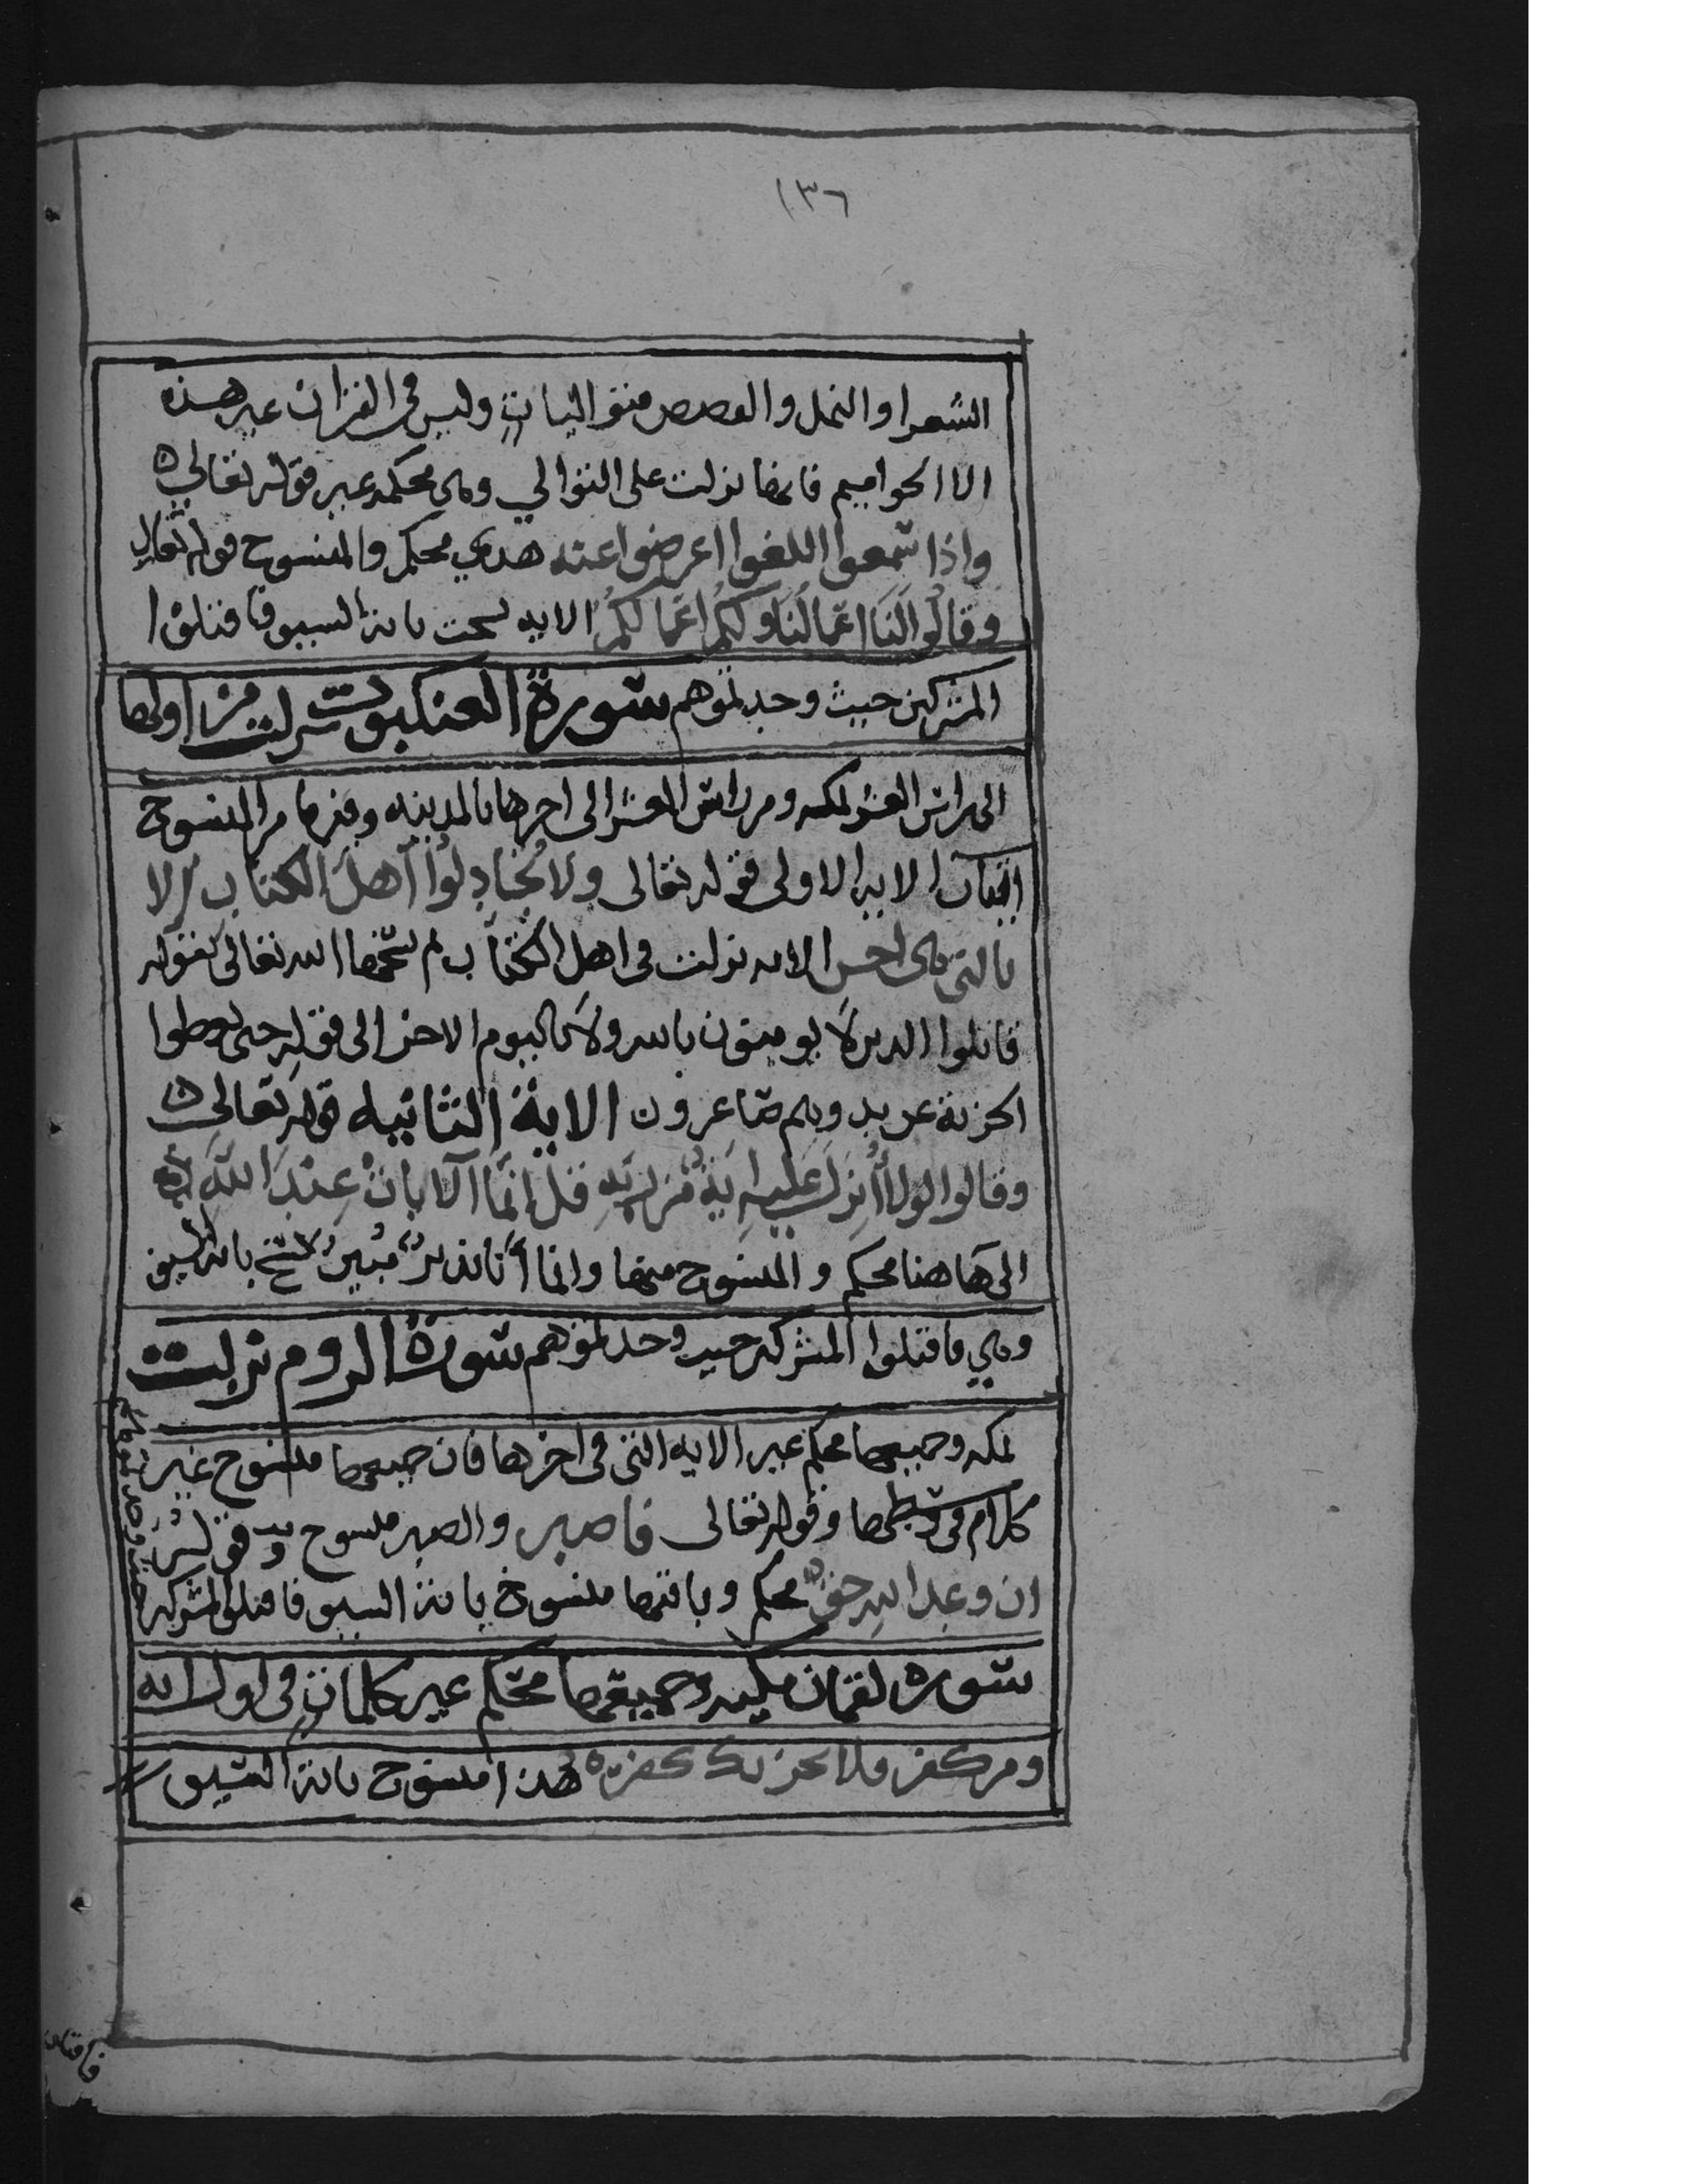 ١٣٦
الشعرا والنمل والقصص متواليات وليس في القران غير هذه
الا الحواميم فانها نزلت على التوالي وهي محكمه غير قوله تعالى
واذا سمعوا اللغوا اعرضوا عنه هدي محكم والمنسوح قوله تعالى
وقالوا لنا اعمالنا ولكم اعمالكم الايه نسخت باية السيف فاقتلوا
المشركين حيث وجدتموهم سورة العنكبوت نزلت من اولها
الى راس العشر بمكه ومن راس العشر الى اخرها بالمدينه وفيها من المنسوح
ايتان الايه الاولى قوله تعالى ولا تجادلوا اهل الكتاب الا
بالتي هي احسن الايه نزلت في اهل الكتاب ثم نسخها الله تعالى بقوله
قاتلوا الدين لا يومنون بالله ولا باليوم الاخر الى قوله حتى يعطوا
الجزية عن يد وهم صاغرون الاية الثانيه قوله تعالى
وقالوا لولا أنزل عليه اية من ربه قل إنما الآيات عند الله
الى هاهنا محكم والمنسوح منها وانما أنا نذير مبين نسخ باية السيف
وهي فاقتلوا المشركين حيث وجدتموهم سورة الروم نزلت
بمكه وجميعها محكم غير الايه التي في اخرها فان جميعها منسوح غير
كلام في وسطها وقوله تعالى فاصبر والصبر منسوح وقوله
ان وعد الله حق محكم وباقيها منسوخ باية السيف فاقتلوا المشركين
حيث وجدتموهم
سورة لقمان مكيه وجميعها محكم غير كلمات في اول ايه
ومن كفر فلا يحزنك كفره هذا منسوح باية السيف
فاقتلوا